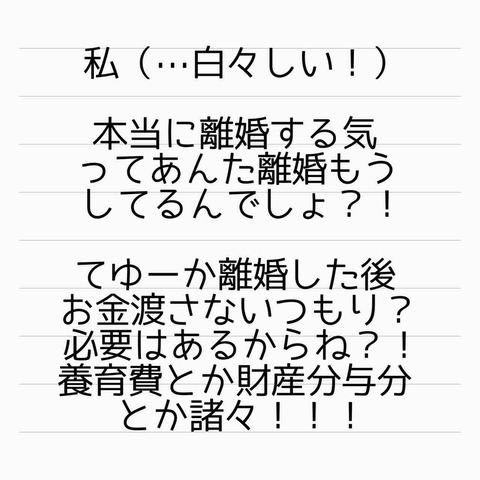 私（…白々しい！）
本当に離婚する気
ってあんた離婚もう
してるんでしょ？！
てゆーか離婚した後
お金渡さないつもり？
必要はあるからね？！
養育費とか財産分与分
とか諸々！！！